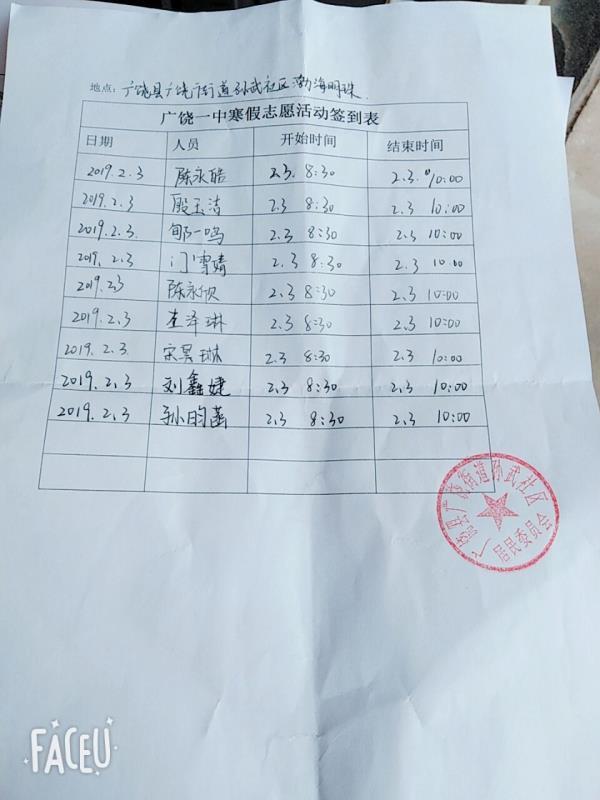 地点：广饶县广饶街道孙武社区渤海明珠
广饶一中寒假志愿活动签到表
日期 人员 开始时间 结束时间
2019.2.3 陈永皓 2.3. 8:30 2.3. 10:00
2019.2.3 殷玉洁 2.3 8:30 2.3 10:00
2019.2.3. 郇一鸣 2.3 8:30 2.3 10:00
2019.2.3 门雪婧 2.3 8:30 2.3 10:00
2019.2.3 陈永 2.3 8:30 2.3 10:00
2019.2.3 李泽琳 2.3 8:30 2.3 10:00
2019.2.3. 宋昊琳 2.3 8:30 2.3 10:00
2019.2.3 刘鑫婕 2.3 8:30 2.3 10:00
2019.2.3 孙昀菡 2.3 8:30 2.3 10:00
广饶县广饶街道孙武社区
居民委员会
FACEU